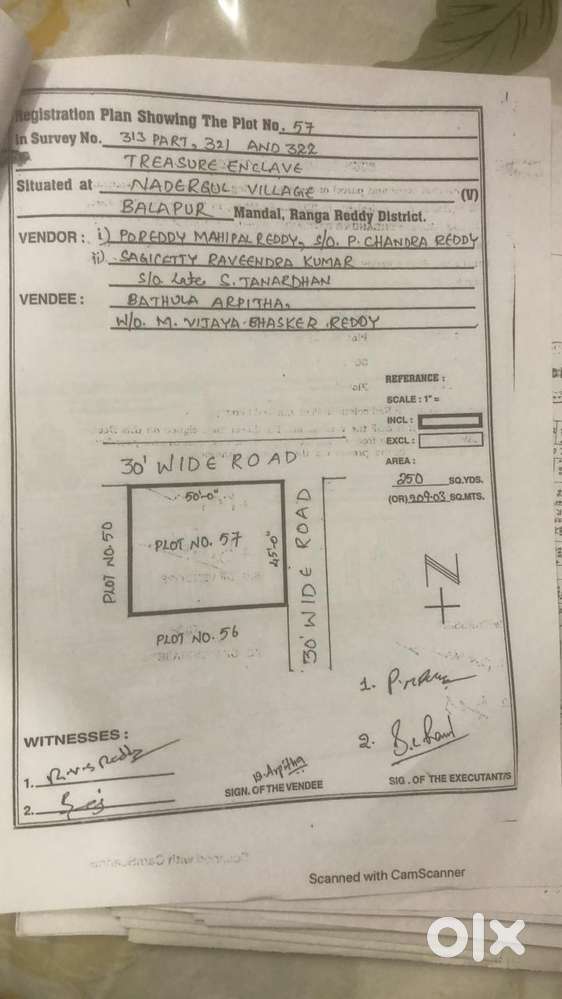 Registration Plan Showing The Plot No. 57
in Survey No. 313 PART, 321 AND 322
TREASURE ENCLAVE
Situated at NADERGUL VILLAGE (V)
BALAPUR Mandal, Ranga Reddy District.
VENDOR : i) POREDDY MAHIPAL REDDY, S/O. P. CHANDRA REDDY
ii) SAGICETTY RAVEENDRA KUMAR
S/o Late S. JANARDHAN
VENDEE : BATHULA ARPITHA,
W/O. M. VIJAYA BHASKER REDDY
REFERANCE :
SCALE : 1" =
INCL :
EXCL :
AREA :
250 SQ.YDS.
(OR) 209.03 SQ.MTS.
30' WIDE ROAD
50'-0"
PLOT NO. 50
PLOT NO. 57
45'-0"
30' WIDE ROAD
PLOT NO. 56
N
1.
2.
WITNESSES :
1. R.V.S Reddy
2.
B. Arpitha
SIGN. OF THE VENDEE
SIG. OF THE EXECUTANT/S
Scanned with CamScanner
olx